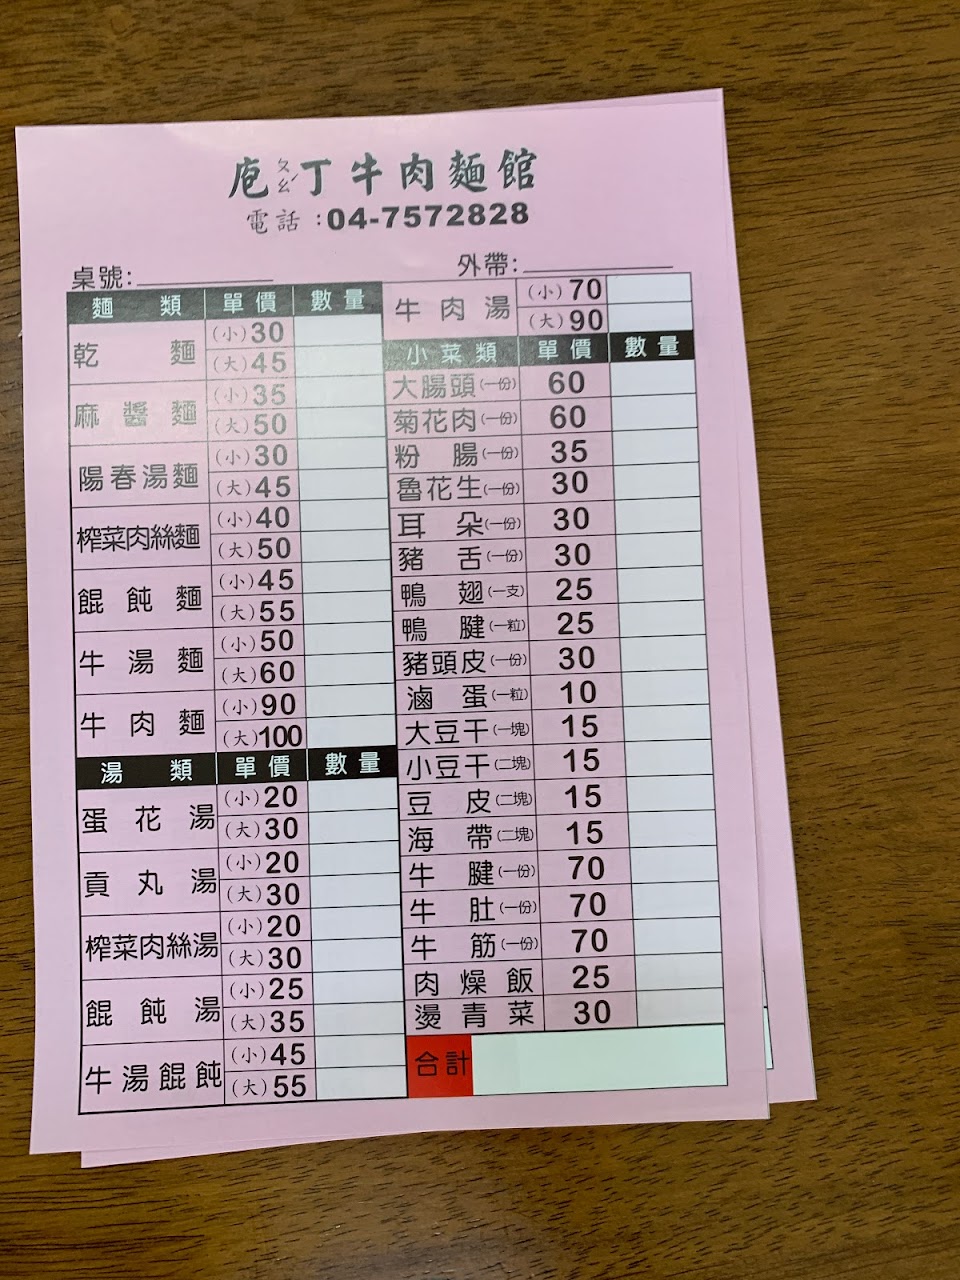 庖ㄆㄠˊ丁牛肉麵館
電話：04-7572828
桌號：
外帶：
麵類 單價 數量
乾麵 (小)30
(大)45
麻醬麵 (小)35
(大)50
陽春湯麵 (小)30
(大)45
榨菜肉絲麵 (小)40
(大)50
餛飩麵 (小)45
(大)55
牛湯麵 (小)50
(大)60
牛肉麵 (小)90
(大)100
湯類 單價 數量
蛋花湯 (小)20
(大)30
貢丸湯 (小)20
(大)30
榨菜肉絲湯 (小)20
(大)30
餛飩湯 (小)25
(大)35
牛湯餛飩 (小)45
(大)55
牛肉湯 (小)70
(大)90
小菜類 單價 數量
大腸頭(一份) 60
菊花肉(一份) 60
粉腸(一份) 35
魯花生(一份) 30
耳朵(一份) 30
豬舌(一份) 30
鴨翅(一支) 25
鴨腱(一粒) 25
豬頭皮(一份) 30
滷蛋(一粒) 10
大豆干(一塊) 15
小豆干(二塊) 15
豆皮(二塊) 15
海帶(二塊) 15
牛腱(一份) 70
牛肚(一份) 70
牛筋(一份) 70
肉燥飯 25
燙青菜 30
合計